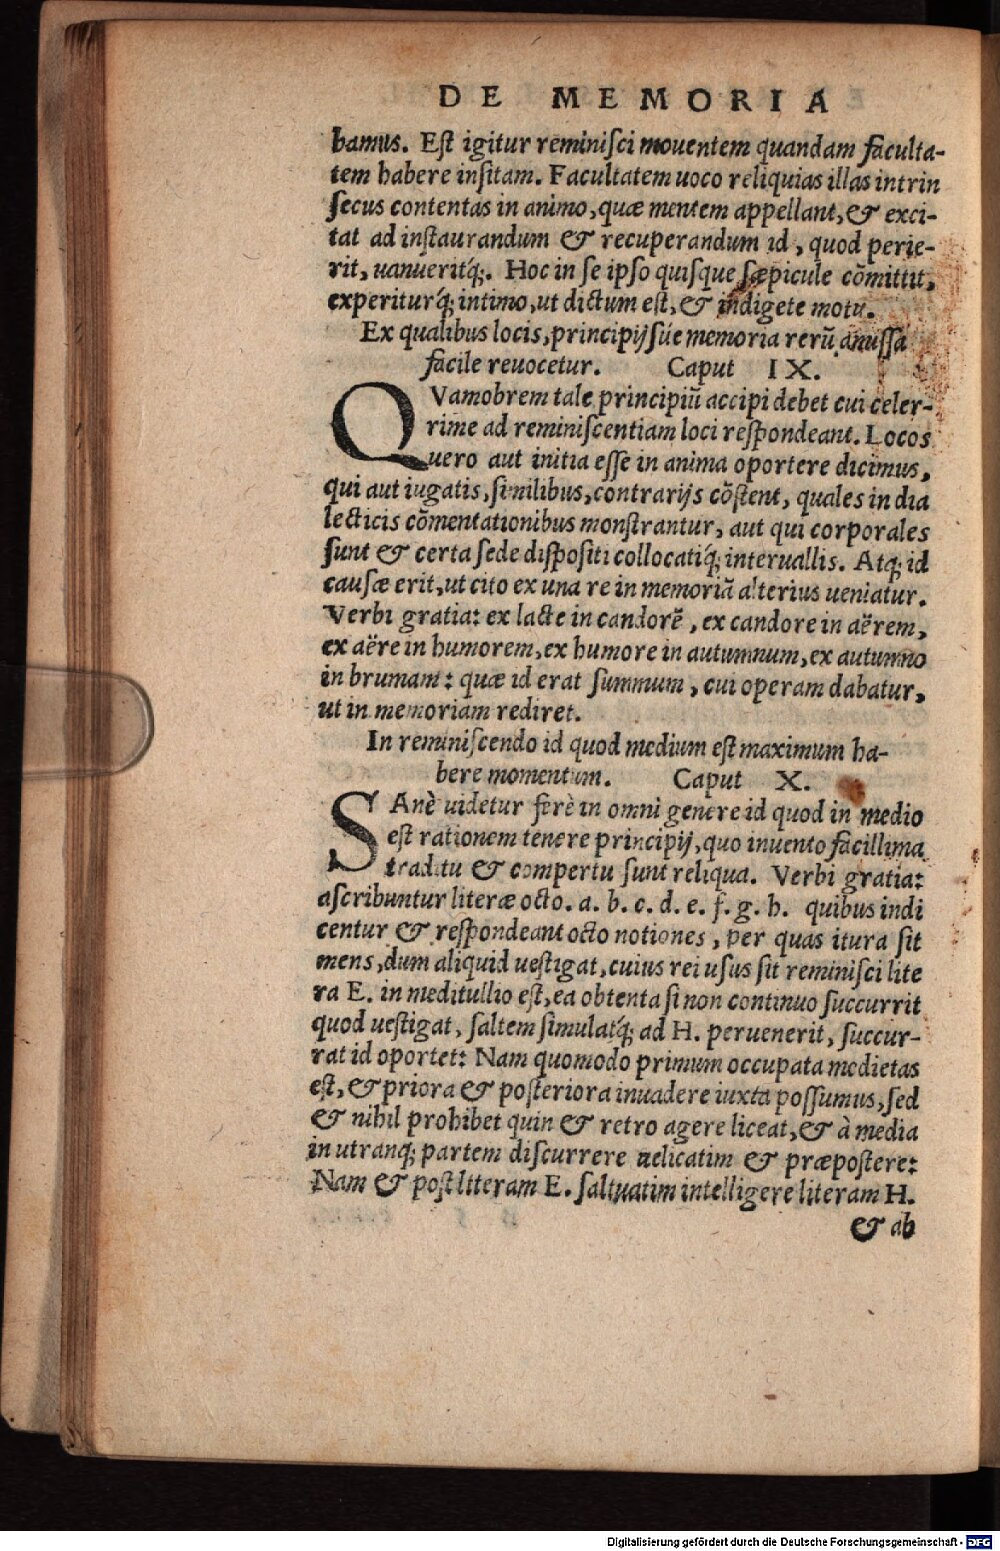 DE MEMORIA
bamus. Est igitur reminisci mouentem quandam faculta-
tem habere insitam. Facultatem uoco reliquias illas intrin
secus contentas in animo, quæ mentem appellant, & exci-
tat ad instaurandum & recuperandum id, quod perie-
rit, uanueritq́;. Hoc in se ipso quisque sæpicule cõmittit,
experiturq́; intimo, ut dictum est, & indigete motu.
Ex qualibus locis, principijsúe memoria rerũ amissa
facile reuocetur. Caput IX.
QVamobrem tale principiũ accipi debet cui celer-
rime ad reminiscentiam loci respondeant. Locos
uero aut initia esse in anima oportere dicimus,
qui aut iugatis, similibus, contrarijs cõstent, quales in dia
lecticis cõmentationibus monstrantur, aut qui corporales
sunt & certa sede dispositi collocatiq́; interuallis. Atq; id
causæ erit, ut cito ex una re in memoriã alterius ueniatur.
Verbi gratia: ex lacte in candorẽ, ex candore in aërem,
ex aëre in humorem, ex humore in autumnum, ex autumno
in brumam: quæ id erat summum, cui operam dabatur,
ut in memoriam rediret.
In reminiscendo id quod medium est maximum ha-
bere momentum. Caput X.
SAnè uidetur ferè in omni genere id quod in medio
est rationem tenere principij, quo inuento facillima
traditu & compertu sunt reliqua. Verbi gratia:
ascribuntur literæ octo. a. b. c. d. e. f. g. h. quibus indi
centur & respondeant octo notiones, per quas itura sit
mens, dum aliquid uestigat, cuius rei usus sit reminisci lite
ra E. in meditullio est, ea obtenta si non continuo succurrit
quod uestigat, saltem simulatq́; ad H. peruenerit, succur-
rat id oportet: Nam quomodo primum occupata medietas
est, & priora & posteriora inuadere iuxta possumus, sed
& nihil prohibet quin & retro agere liceat, & à media
in utranq; partem discurrere uelicatim & præpostere:
Nam & post literam E. saltuatim intelligere literam H.
& ab
Digitalisierung gefördert durch die Deutsche Forschungsgemeinschaft - DFG